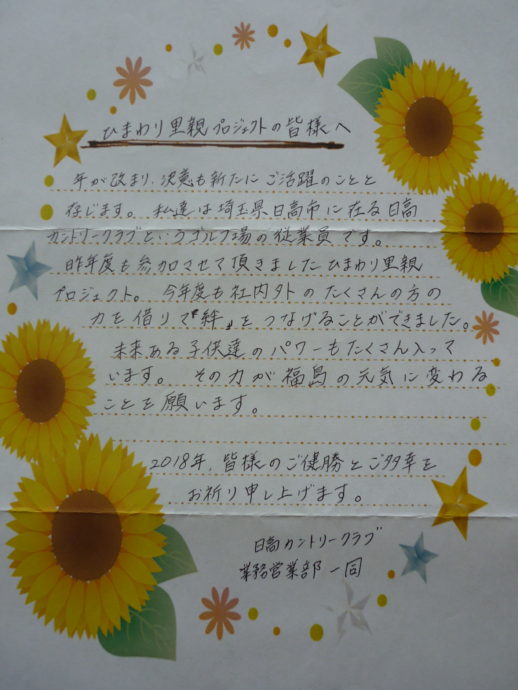 ひまわり里親プロジェクトの皆様へ
年が改まり、決意も新たにご活躍のことと
存じます。私達は埼玉県日高市に在る日高
カントリークラブというゴルフ場の従業員です。
昨年度も参加させて頂きましたひまわり里親
プロジェクト。今年度も社内外のたくさんの方の
力を借りて『絆』をつなげることができました。
未来ある子供達のパワーもたくさん入って
います。その力が福島の元気に変わる
ことを願います。
2018年、皆様のご健勝とご多幸を
お祈り申し上げます。
日高カントリークラブ
業務営業部一同